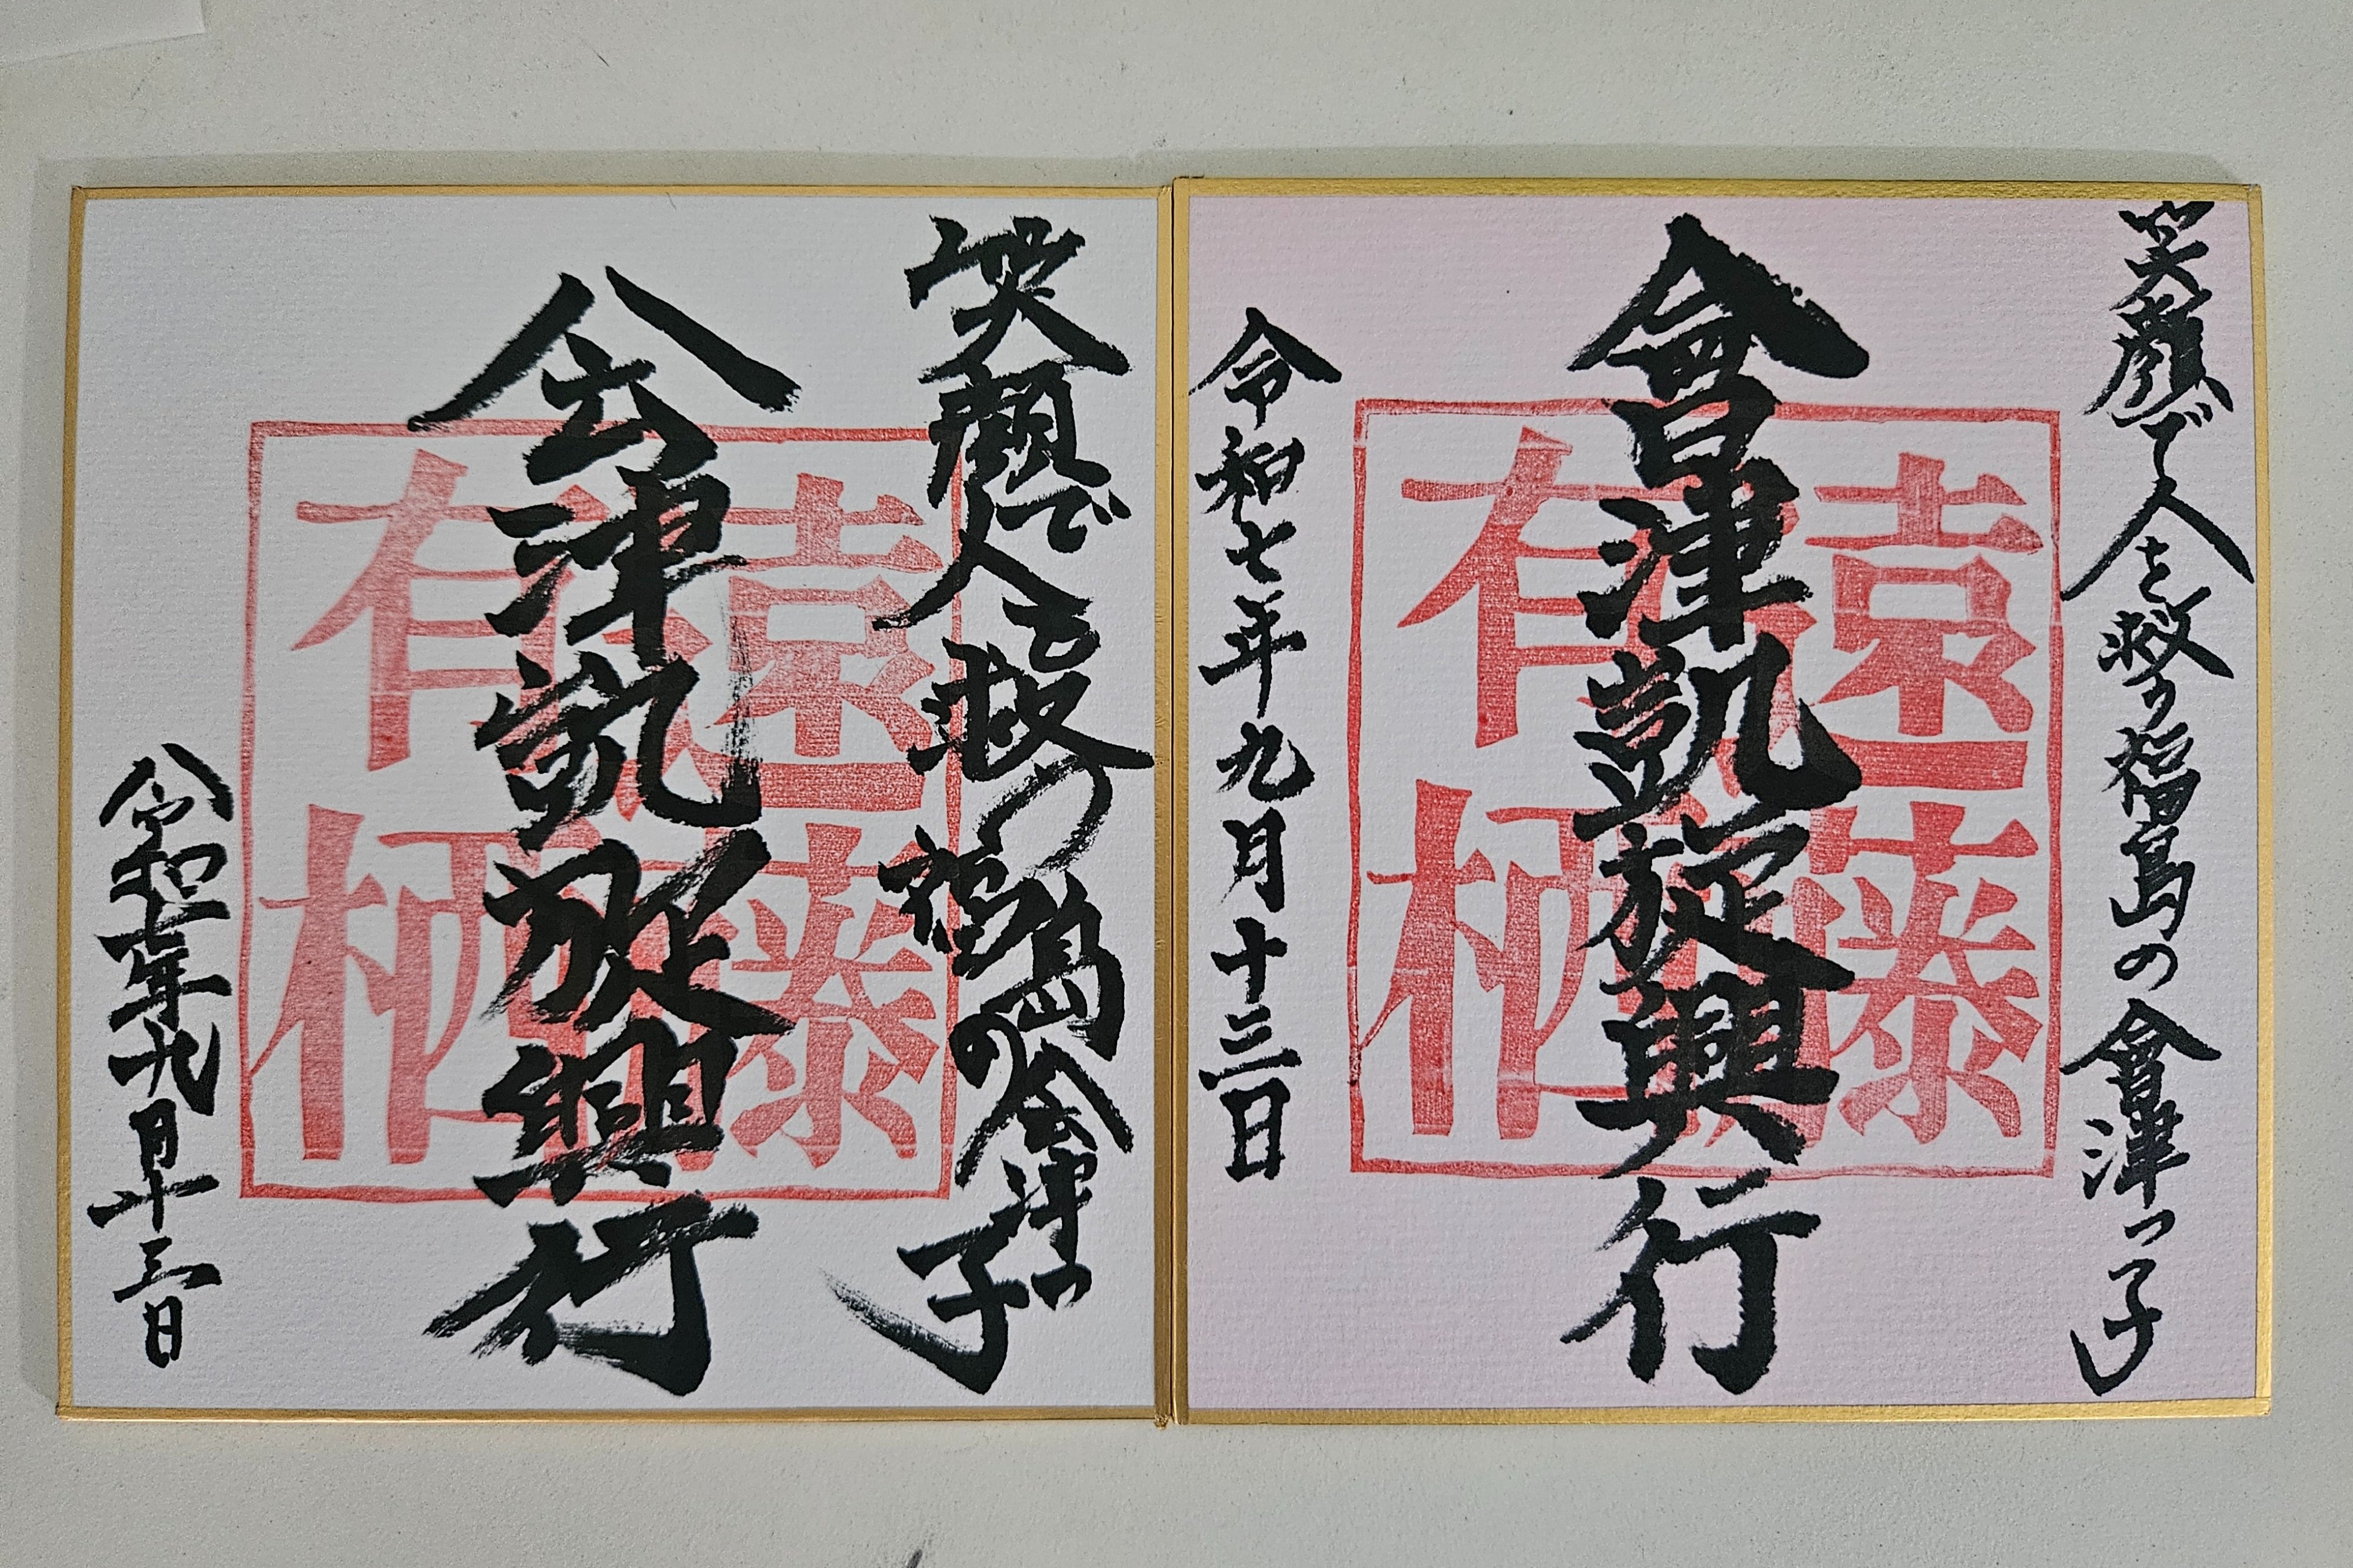 笑顔で人を救う福島の會津っ子
會津凱旋興行
令和七年九月十三日
遠藤
有栖
笑顔で人を救う福島の会津っ子
会津凱旋興行
令和七年九月十三日
遠藤
有栖